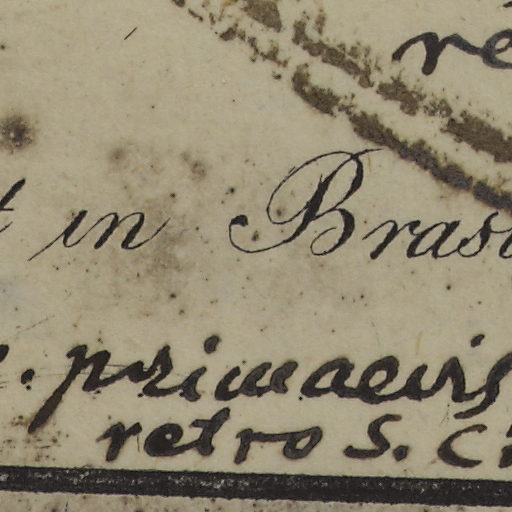 re
t in Bras
. primaevis
retro S. C